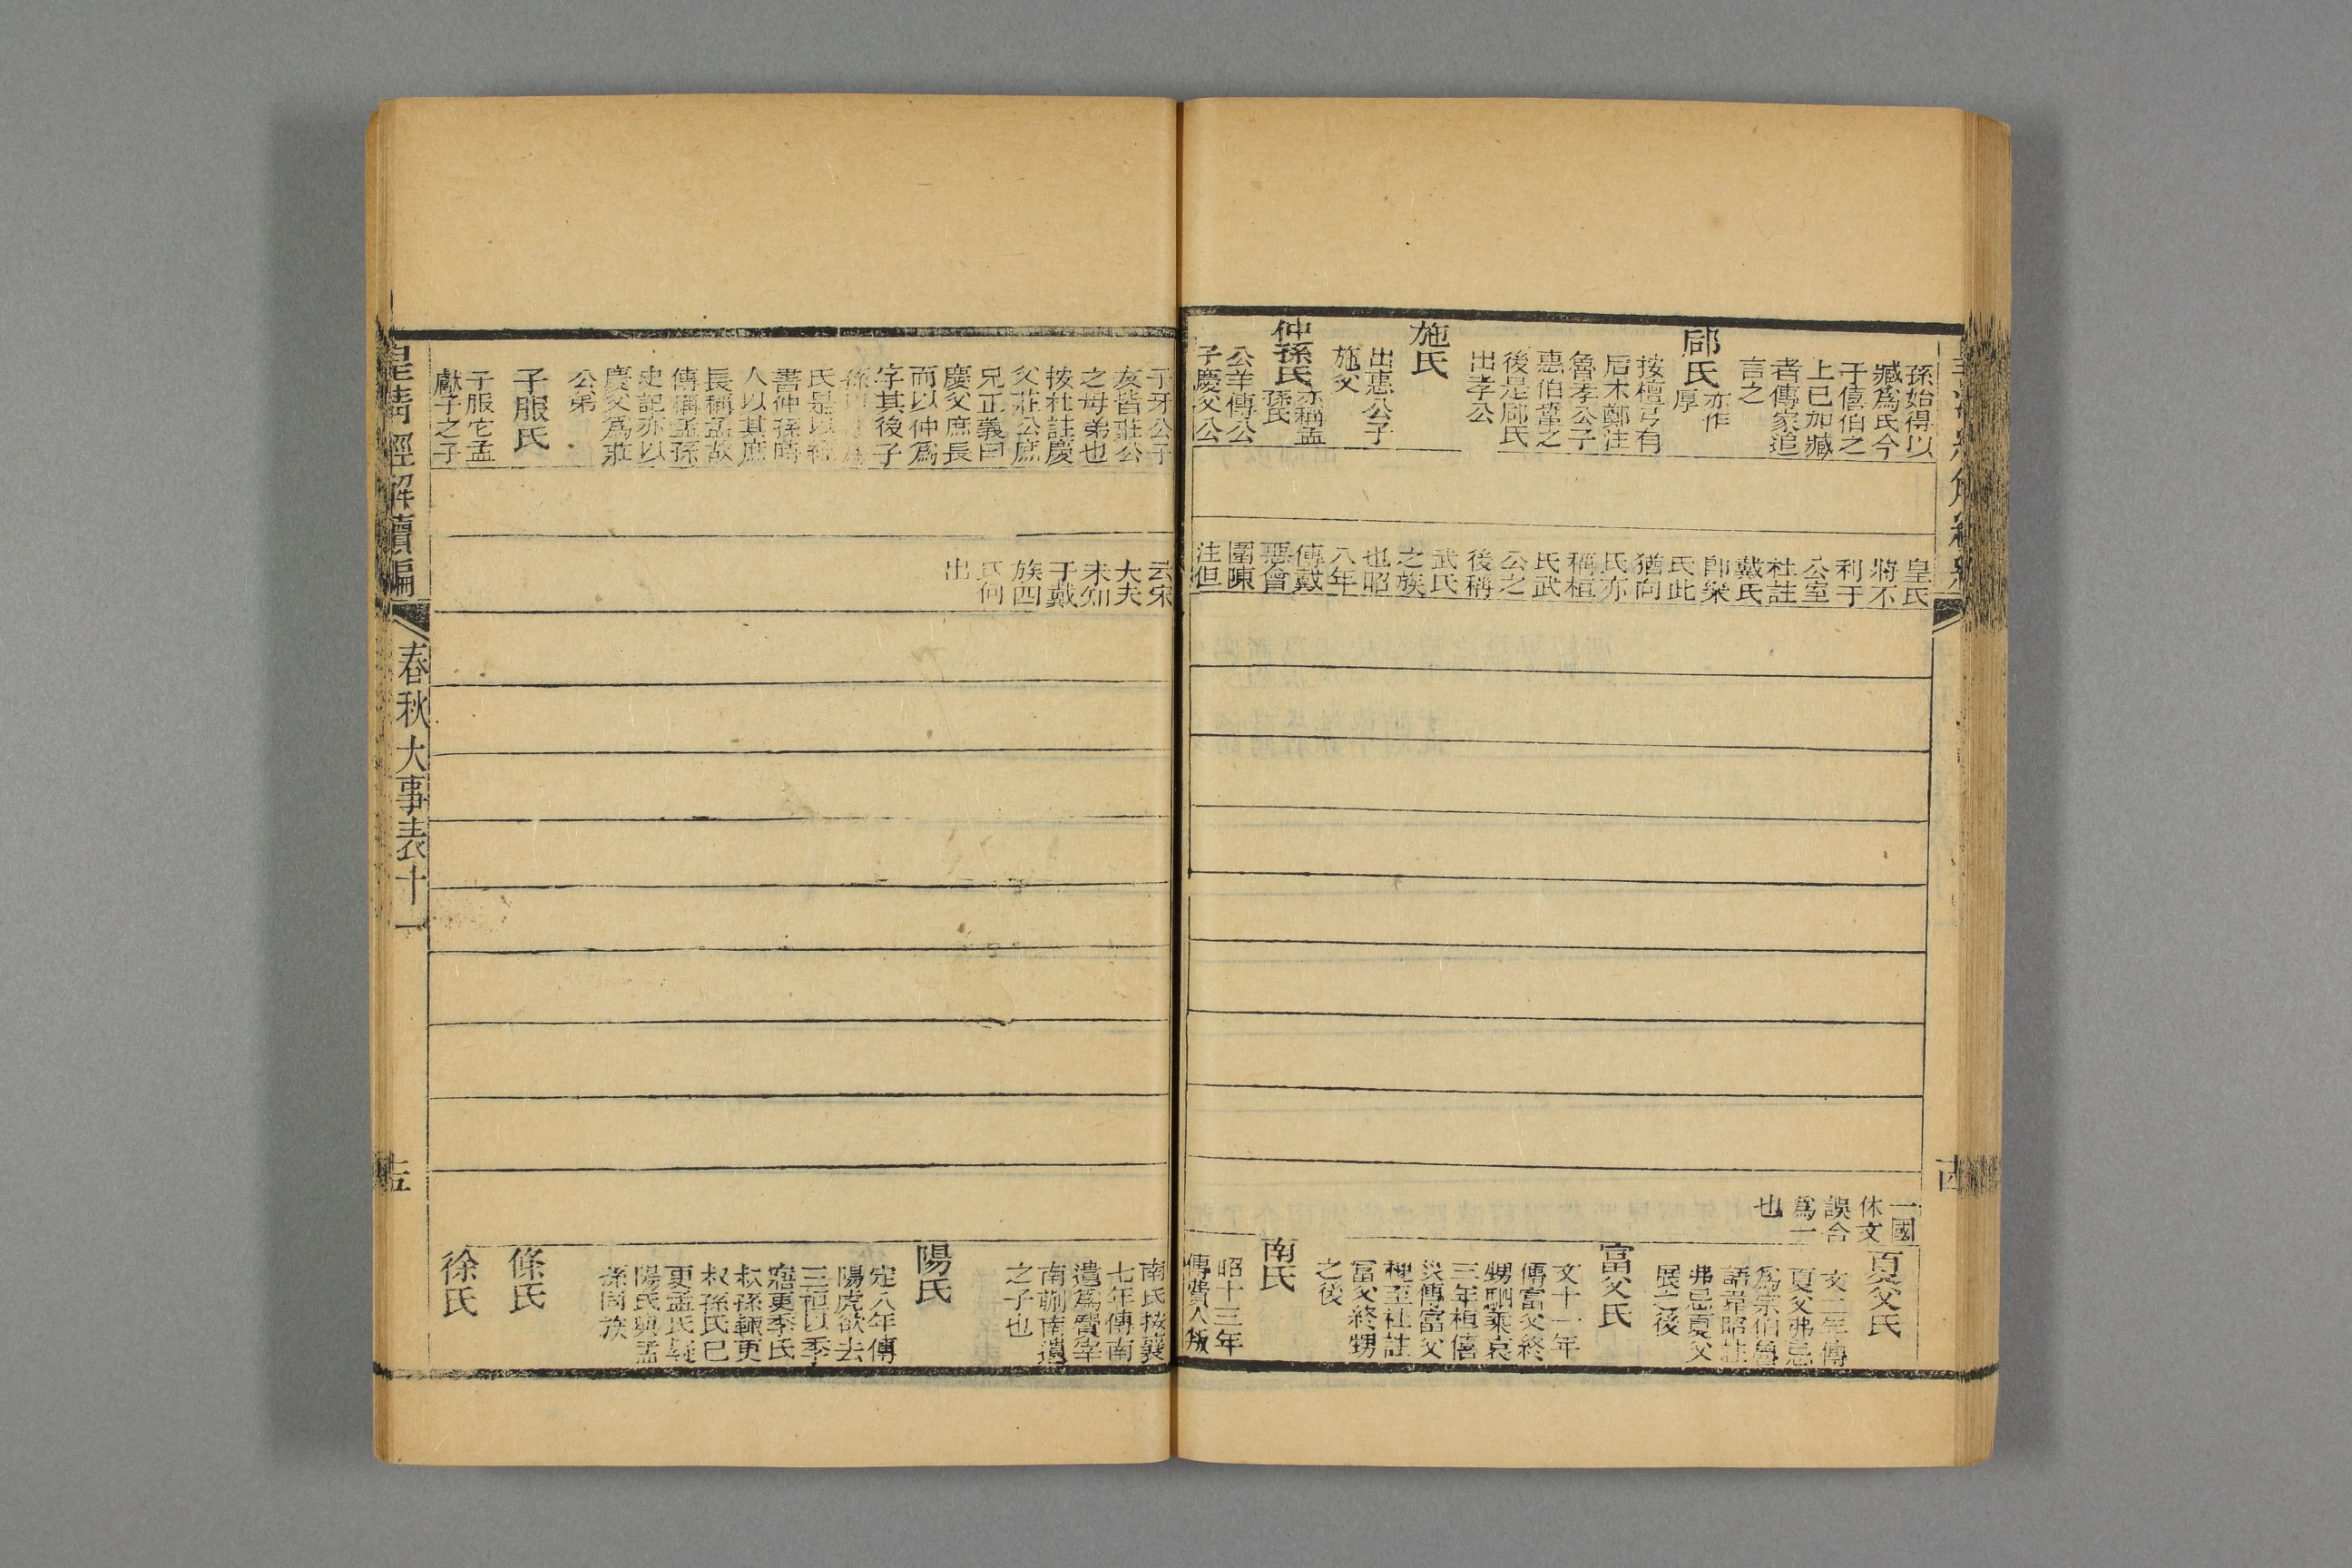 孫始得以
臧爲氏今
于僖伯之
上已加臧
者傳家追
言之
郈氏亦作
厚
按檀弓有
后木鄭注
魯孝公子
惠伯鞏之
後是郈氏
出孝公
施氏
出惠公子
施父
仲孫氏亦稱孟
孫氏
公羊傳公
子慶父公
皇氏
將不
利于
公室
杜註
戴氏
卽樂
氏此
猶向
氏亦
稱桓
氏武
公之
後稱
武氏
之族
也昭
八年
傳戴
惡會
圍陳
注但
一國
休文
誤合
爲一
也
夏父氏
文二年傳
夏父弗忌
爲宗伯魯
語韋昭註
弗忌夏父
展之後
富父氏
文十一年
傳富父終
甥駟乘哀
三年桓僖
災傳富父
槐至杜註
富父終甥
之後
南氏
昭十三年
傳費人叛
子牙公子
友皆莊公
之母弟也
按杜註慶
父莊公庶
兄正義曰
慶父庶長
而以仲爲
字其後子
孫以
氏是以經
書仲孫時
人以其庶
長稱孟故
傳稱孟孫
史記亦以
慶父爲莊
公弟
子服氏
子服它孟
獻子之子
云宋
大夫
未知
于戴
族四
氏何
出
南氏按襄
七年傳南
遺爲費宰
南蒯南遺
之子也
陽氏
定八年傳
陽虎欲去
三桓以季
寤更季氏
叔孫輒更
叔孫氏已
更孟氏疑
陽氏與孟
孫同族
條氏
徐氏
皇清經解續編
春秋大事表十一